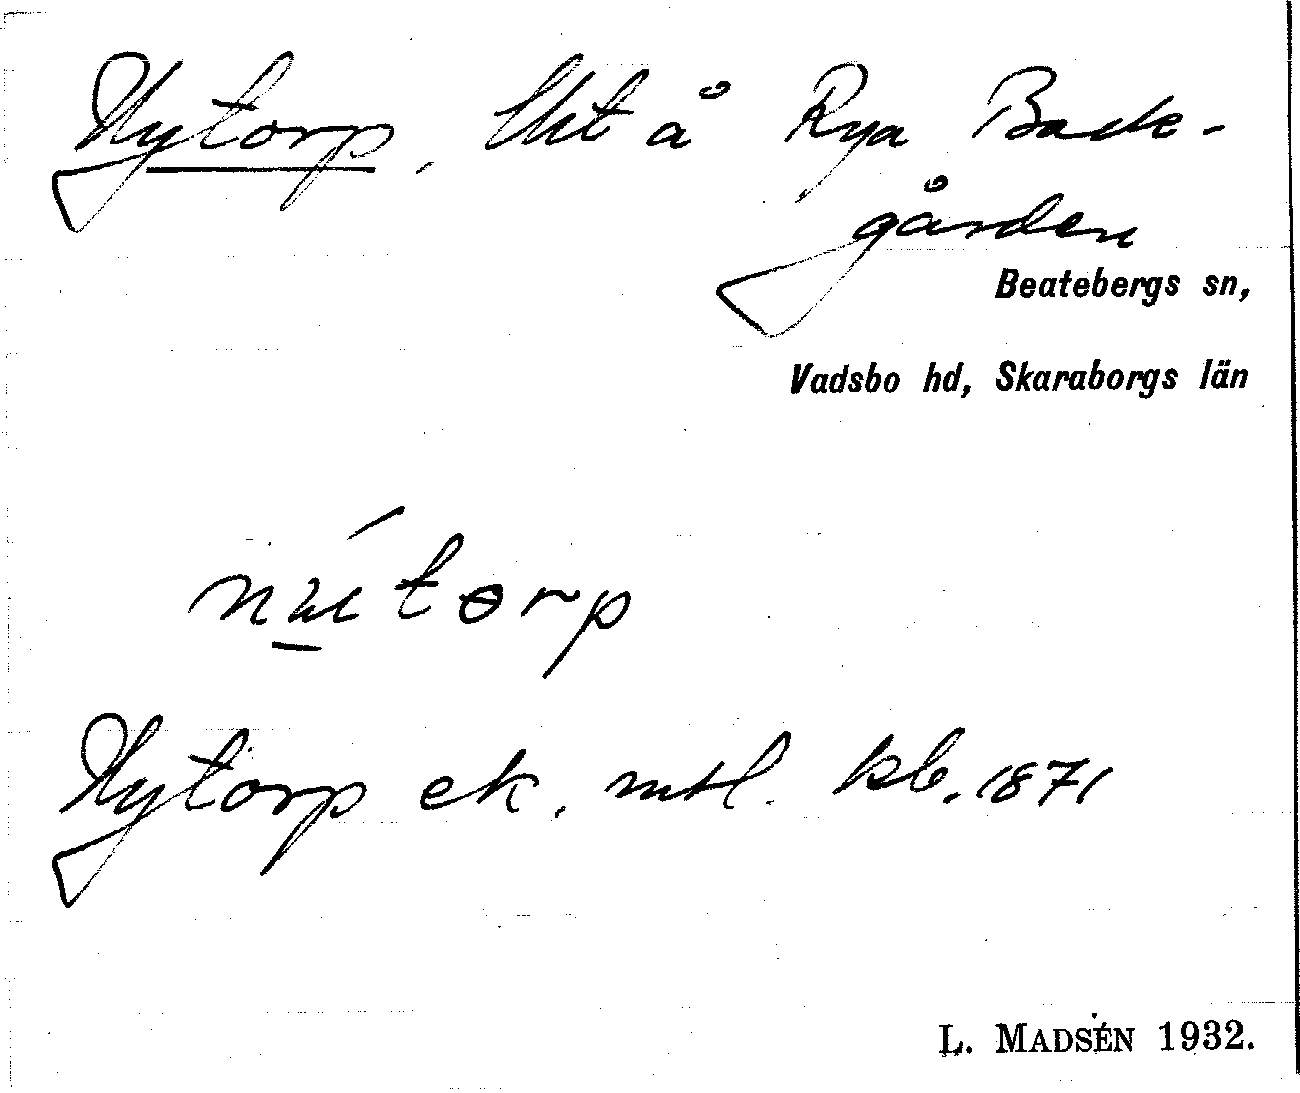 Nytorp, lht å Rya Backe-
gården
Beatebergs sn,
Vadsbo hd, Skaraborgs län
Nytorp ek. mtl. kb. 1871
L. MADSÉN 1932.